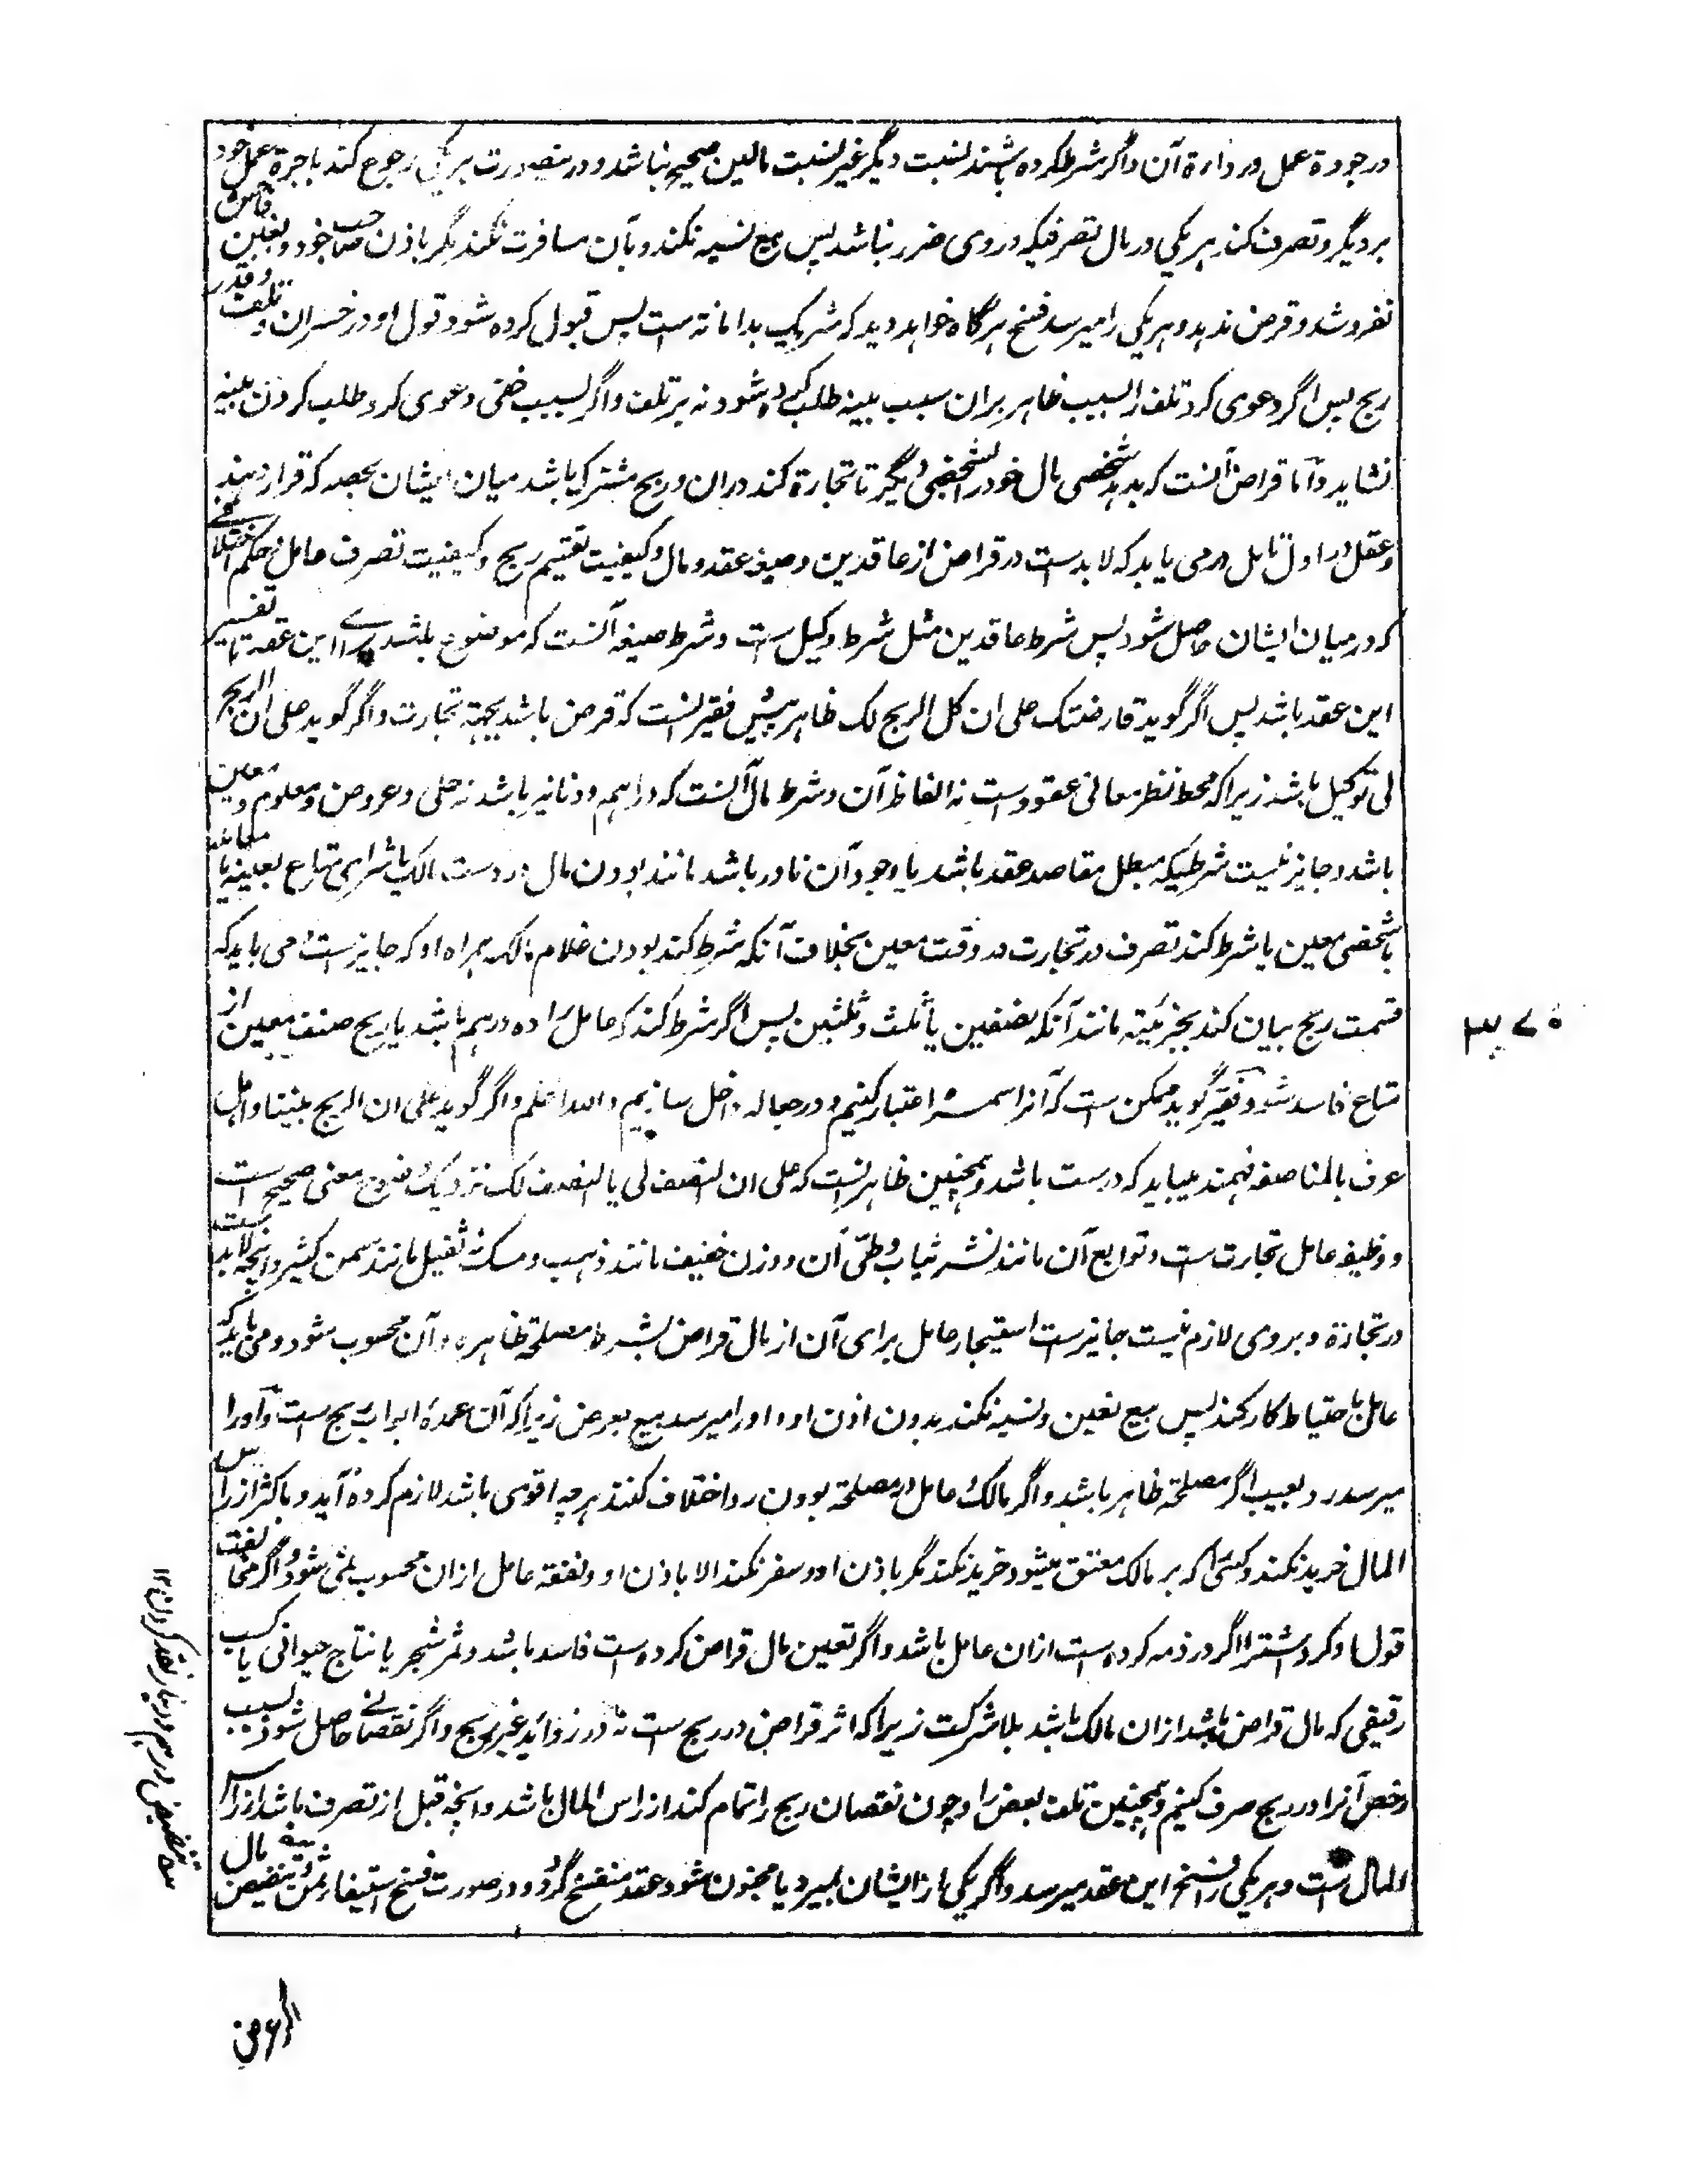 در جودة عمل و رداءة آن و اگر شرط کرده باشند نسبت دیگر غیر نسبت مالین صحیح نباشد و درینصورت هر یکی رجوع کند باجرة عمل خود
بر دیگر و تصرف کند هر یکی در مال تصرفیکه در وی ضرر نباشد پس بیع نسیه نکند و بآن مسافرت نکند مگر باذن صاحب خود و بغبن فاحش
نفروشد و قرض ندهد و هر یکی را میرسد فسخ هر گاه خواهد و ید که شریک ید امانة ست پس قبول کرده شود قول او در خسران و تلف و قدر
ربح پس اگر دعوی کرد تلف را بسبب ظاهر بران سبب بینه طلب کرده شود نه بر تلف و اگر بسبب خفی دعوی کرد طلب کردن بینه
نشاید و اما قراض آنست که بدهد شخصی مال خود را بشخصی دیگر تا تجارة کند دران و ربح مشترک باشد میان ایشان بحصه که قرار دهند
و عقل در اول تامل در می یابد که لابدست در قراض از عاقدین و صیغه عقد و مال و کیفیت تقسیم ربح و کیفیت تصرف عامل و حکم اختلافے
که درمیان ایشان حاصل شود پس شرط عاقدین مثل شرط وکیل ست و شرط صیغه آنست که موضوع باشد برای این عقد تا تفسیر
این عقد باشد پس اگر گوید قارضتک علی ان کل الربح لک ظاهر پیش فقیر آنست که قرض باشد بجهة تجارت و اگر گوید علی ان الربح
لی توکیل باشد زیرا که محط نظر معانی عقود ست نه الفاظ آن و شرط مال آنست که دراهم و دنانیر باشد نه حلی و عروض و معلوم و معین
باشد و جایز نیست شرطیکه مبطل مقاصد عقد باشد یا وجود آن نادر باشد مانند بودن مال در دست مالک یا شرای متاع بعینه یا معامله
با شخصی معین یا شرط کند تصرف در تجارت در وقت معین بخلاف آنکه شرط کند بودن غلام مالک همراه او که جایز ست و می باید که
قسمت ربح بیان کند بجزئیته مانند آنکه نصفین یا ثلث و ثلثین پس اگر شرط کند که عامل را ده درهم باشد یا ربح صنف معین از
متاع فاسد شود و فقیر گوید ممکن ست که آنرا سمسره اعتبار کنیم و در جعاله داخل سازیم و الله اعلم و اگر گوید علی ان الربح بیننا و اهل
عرف بالمناصفه فهمند میباید که درست باشد و همچنین ظاهر آنست که علی ان النصف لی یا النصف لک نزدیک وضوح معنی صحیح است
و وظیفه عامل تجارت ست و توابع آن مانند نشر ثیاب و طی آن و وزن خفیف مانند ذهب و مسک نه ثقیل مانند سمن کثیر و آنچه لابد ست
در تجارة و بر وی لازم نیست جایز ست استیجار عامل برای آن از مال قراض بشرط مصلحة ظاهره و آن محسوب شود و می باید که
عامل باحتیاط کار کند پس بیع بغبن و نسیه نکند بدون اذن او و او را میرسد بیع بعرض زیرا که آن عمدۀ ابواب ربح ست و او را
میرسد رد بعیب اگر مصلحة ظاهر باشد و اگر مالک و عامل در مصلحة بودن رد اختلاف کنند هر چه اقوی باشد لازم کرده آید و باکثر از راس
المال خرید نکند و کسی را که بر مالک معتق میشود خرید نکند مگر باذن او و سفر نکند الا باذن او و نفقه عامل ازان محسوب نمی شود و اگر مخالفت
قول او کرد اشترا اگر در ذمه کرده ست ازان عامل باشد و اگر بعین مال قراض کرده ست فاسد باشد و ثمر شجر یا نتاج حیوانی یا کسب
رقیقی که مال قراض باشد ازان مالک باشد بلا شرکت زیرا که اثر قراض در ربح ست نه در زوائد غیر ربح و اگر نقصانے حاصل شود بسبب
رخص آنرا در ربح صرف کنیم و همچنین تلف بعض را و چون نقصان ربح را تمام کند از راس المال باشد و آنچه قبل از تصرف باشد از راس
المال ست و هر یکی را فسخ این عقد میرسد و اگر یکی از ایشان بمیرد یا مجنون شود عقد منفسخ گردد و در صورت فسخ استیفای ثمن و تنضیض بقیه مال
۳۷۵
تنضیض درهم و دینار نقد کردن ۱۲